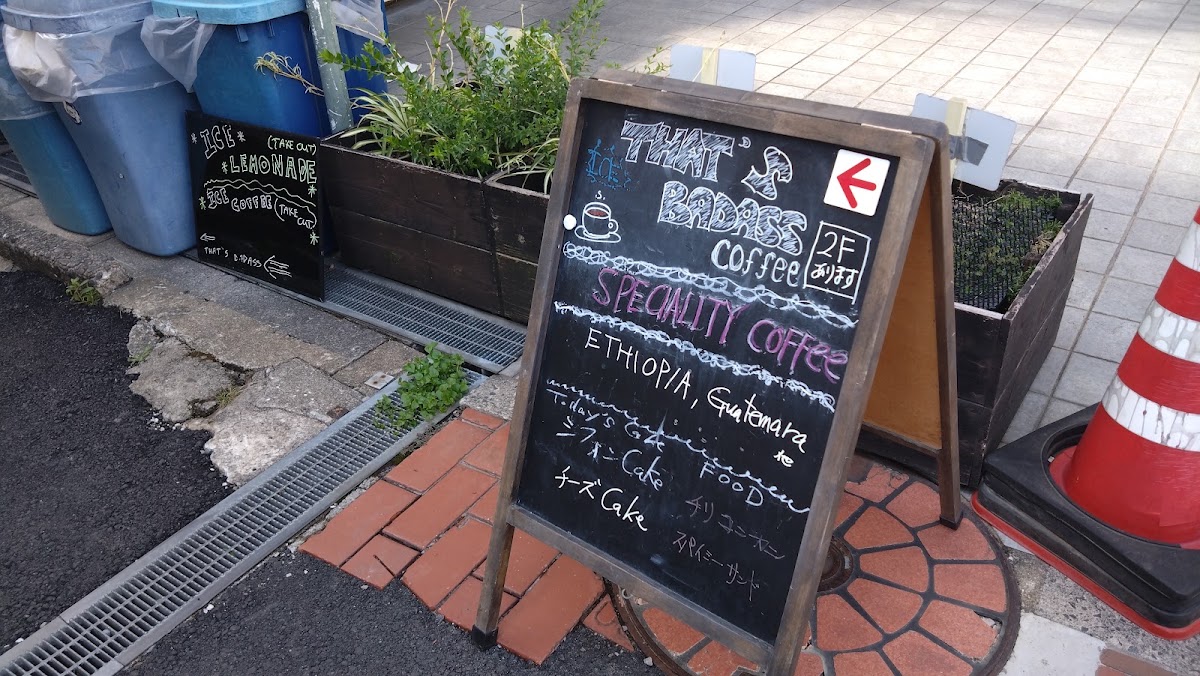 THAT'S
BADASS
coffee
2F
あります
SPECIALITY COFFEE
ETHIOPIA, Guatemara
Today's Cake
シフォンCake
チーズCake
FOOD
チリコンカン
スパイシーサンド
ICE
(TAKE OUT)
LEMONADE
ICE COFFEE (TAKE OUT)
THAT'S BADASS